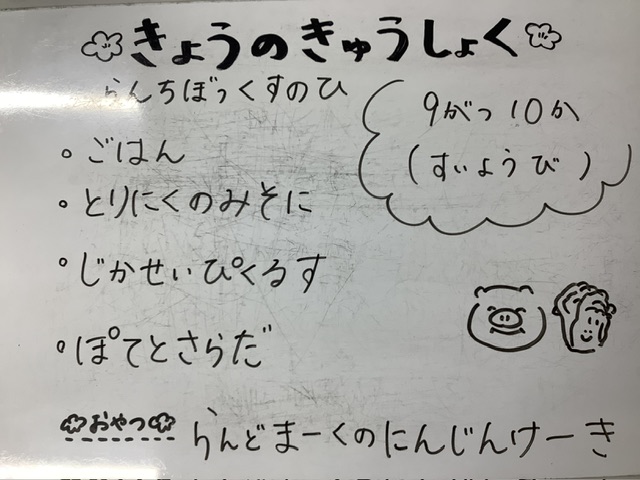 きょうのきゅうしょく
らんちぼっくすのひ
9がつ10か
(すいようび)
・ごはん
・とりにくのみそに
・じかせいぴくるす
・ぽてとさらだ
おやつ らんどまーくのにんじんけーき